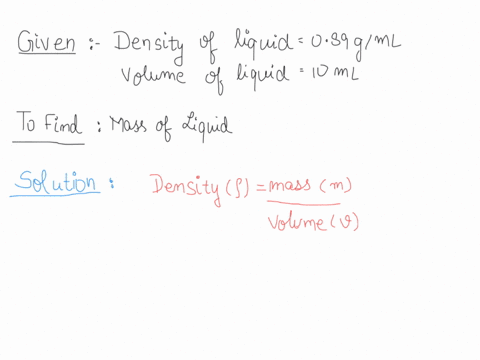 Given :- Density of liquid = 0.89 g/mL
Volume of liquid = 10 mL
To Find : Mass of Liquid
Solution : Density (ρ) = mass (m)
Volume (v)